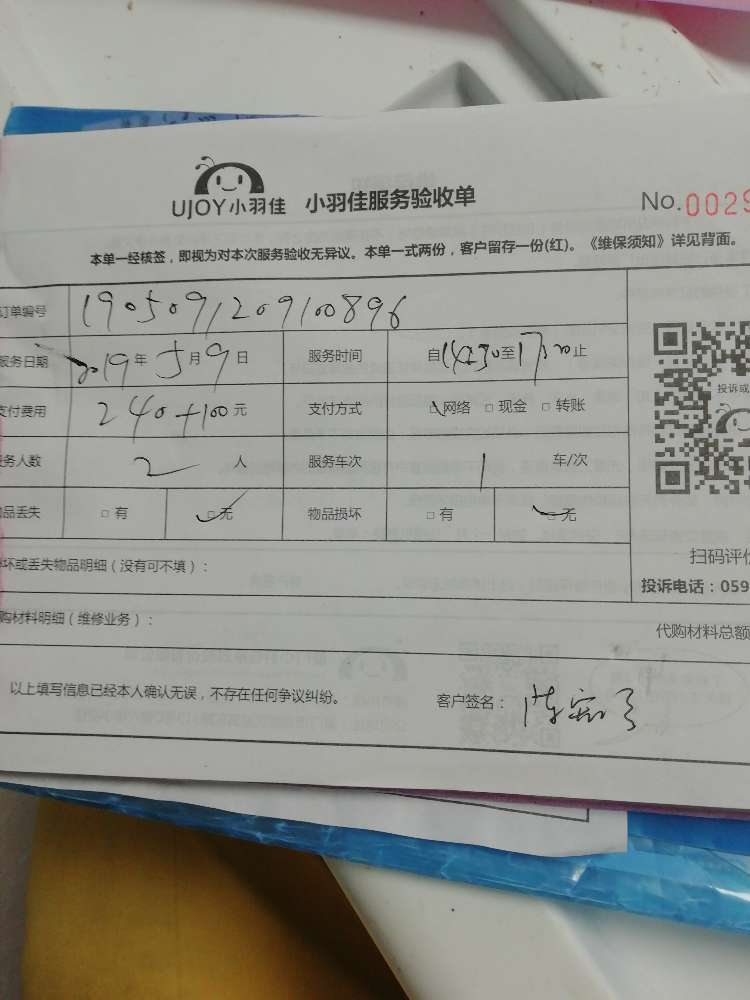 UJOY小羽佳 小羽佳服务验收单 No.0029
本单一经核签，即视为对本次服务验收无异议。本单一式两份，客户留存一份(红)。《维保须知》详见背面。
订单编号 1905091209100896
服务日期 2019年5月9日 服务时间 自14:30至17:30止
支付费用 240+100元 支付方式 □网络 □现金 □转账
务人数 2人 服务车次 1车/次
品丢失 □有 □无 物品损坏 □有 □无
投诉或
扫码评价
坏或丢失物品明细（没有可不填）：
投诉电话：059
购材料明细（维修业务）：
代购材料总额
以上填写信息已经本人确认无误，不存在任何争议纠纷。 客户签名：